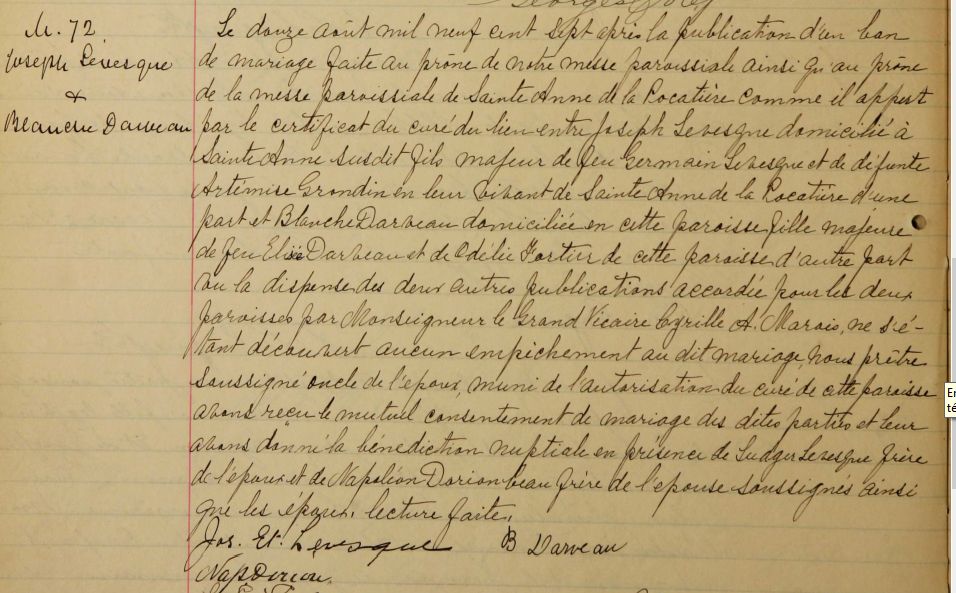 M. 72
Joseph Levesque
&
Blanche Darveau
Le douze août mil neuf cent sept après la publication d'un ban
de mariage faite au prône de notre messe paroissiale ainsi qu'au prône
de la messe paroissiale de Sainte Anne de la Pocatière comme il appert
par le certificat du curé du lieu entre Joseph Levesque domicilié à
Sainte Anne susdit fils majeur de feu Germain Levesque et de défunte
Artémise Grondin en leur vivant de Sainte Anne de la Pocatière d'une
part et Blanche Darveau domiciliée en cette paroisse fille majeure
de feu Elisé Darveau et de Odélie Fortier de cette paroisse d'autre part
vu la dispense des deux autres publications accordée pour les deux
paroisses par Monseigneur le Grand Vicaire Cyrille A. Marois, ne s'é-
tant découvert aucun empêchement au dit mariage, nous prêtre
soussigné oncle de l'epoux, muni de l'autorisation du curé de cette paroisse
avons reçu le mutuel consentement de mariage des dites parties et leur
avons donné la bénédiction nuptiale en présence de Ludger Levesque frère
de l'époux et de Napoléon Dorion beau frère de l'epouse soussignés ainsi
que les époux. lecture faite.
Jos. Et. Levesque B Darveau
Nap Dorion